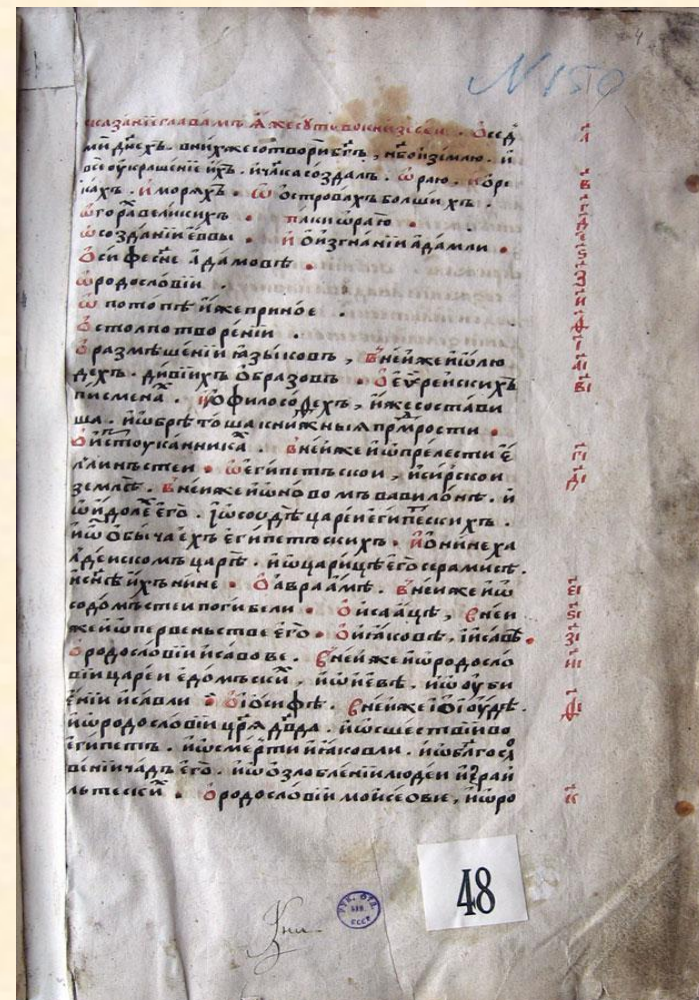 сказанїе главамъ ꙗже суть въ книзе сеи . Ѡ сед
ми днехъ . в нихже сотвори бг҃ъ , нб҃о и землю . и
все оукрашенїе ихъ . и чл҃ка созда . ѡ раю . и ѡ рѣ
ках̾ . и морѧхъ . ѡ островахъ болшихъ .
ѡ горах великихъ . паки ѡ раю .
ѡ созданїи еввы . и ѡ изгнанїи адамли .
Ѡ сифе сн҃е адамовѣ .
ѡ родословїи .
ѡ потопѣ иже при ное .
Ѡ столпотворенїи .
Ѡ размѣшенїи ꙗзыковъ , в неиже и ѡ лю
дехъ . дивїихъ образовъ . Ѡ еврейскихъ
писмена . и ѡ философехъ , иже состави
ша . и ѡбрѣтоша книжныѧ прм҃рости .
Ѡ истоуканника . в неиже и ѡ прелести е
ллинъстеи . ѡ египетъскои , и сирскои
землѣ . в неиже и ѡ новомъ вавилонѣ . и
ѡ идоле его . и ѡ соудѣ царей египетских .
и ѡ обычаехъ египетьских . и ѡ нине ха
лдейскомъ царѣ . и ѡ царице его серамисѣ .
и сн҃ѣ ихъ нине . Ѡ авраамѣ . в неиже и ѡ
содомъстеи погибели . Ѡ исаацѣ , в неи
же и ѡ первеньстве его . Ѡ иꙗковѣ , и исавѣ .
Ѡ родословїи исавове . В неиже и ѡ родосло
вїи царей едомъски , и ѡ иевѣ . и ѡ оуби
енїи исавли . Ѡ їѡсифѣ . В неиже ї ѡ їоудѣ .
и ѡ родословїи цр҃ѧ дв҃да . и ѡ сшествїи во
египетъ . и ѡ смерти иꙗковли . и ѡ блг҃осло
венїи чадъ его . и ѡ озлобленїи людей израи
льтески . Ѡ родословїи моисеовне , и ѡ ро
а
в
г
д
е
ѕ
з
и
ѳ
і
аі
ві
гі
ді
еі
ѕі
зі
иі
ѳі
к
N 150
4
48
РУК. ОТД.
БИБ.
СССР